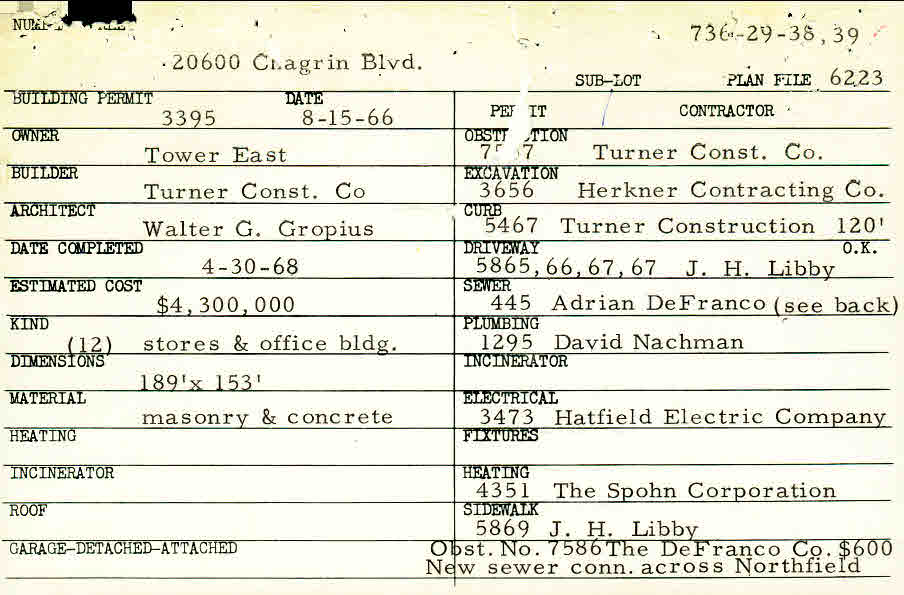 736-29-38, 39
20600 Chagrin Blvd.
SUB-LOT PLAN FILE 6223
BUILDING PERMIT 3395 DATE 8-15-66
PERMIT CONTRACTOR
OWNER Tower East
OBSTRUCTION Turner Const. Co.
BUILDER Turner Const. Co
EXCAVATION 3656 Herkner Contracting Co.
ARCHITECT Walter G. Gropius
CURB 5467 Turner Construction 120'
DATE COMPLETED 4-30-68
DRIVEWAY 5865, 66, 67, 67 J. H. Libby O.K.
ESTIMATED COST $4,300,000
SEWER 445 Adrian DeFranco (see back)
KIND (12) stores & office bldg.
PLUMBING 1295 David Nachman
DIMENSIONS 189'x 153'
INCINERATOR
MATERIAL masonry & concrete
ELECTRICAL 3473 Hatfield Electric Company
HEATING
FIXTURES
INCINERATOR
HEATING 4351 The Spohn Corporation
ROOF
SIDEWALK 5869 J. H. Libby
GARAGE-DETACHED-ATTACHED
Obst. No. 7586 The DeFranco Co. $600
New sewer conn. across Northfield